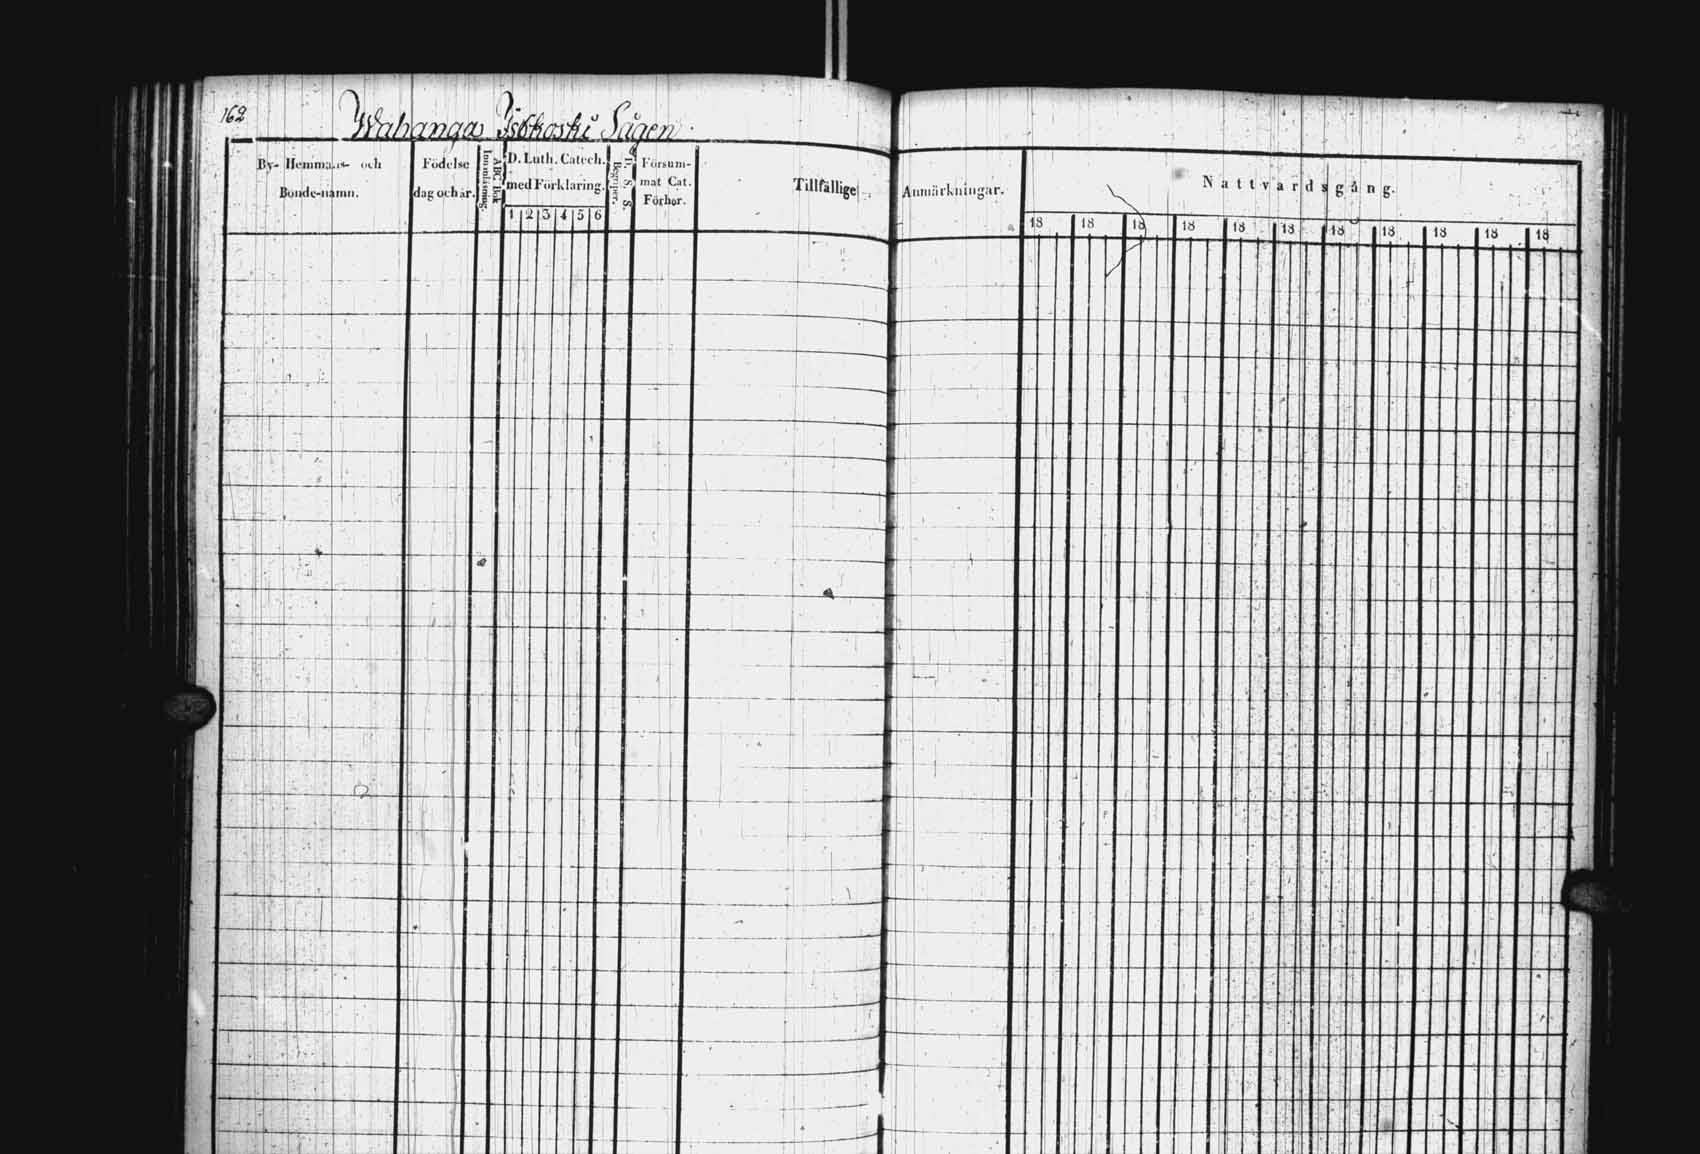 162
Wahanga Isokoski Sågen
By- Hemmans- och
Bonde-namn.
Födelse
dag och år.
ABC Bok
Innanläsning.
D. Luth. Catech.
med Förklaring.
1 2 3 4 5 6
D. S. S.
Begriper.
Försum-
mat Cat.
Förhör.
Tillfällige
Anmärkningar.
Nattvardsgång.
18 18 18 18 18 18 18 18 18 18 18